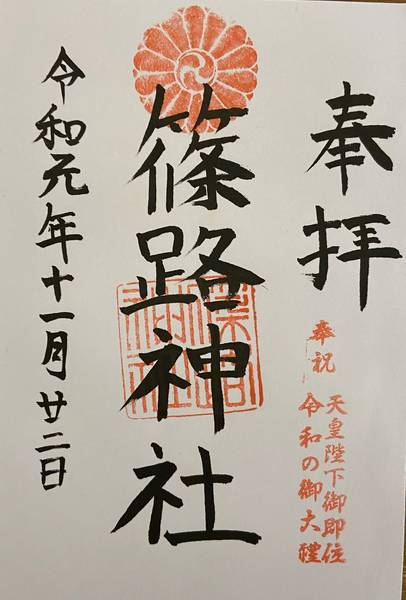 奉拝
奉祝
天皇陛下御即位
令和の御大禮
篠路神社
令和元年十一月廿二日